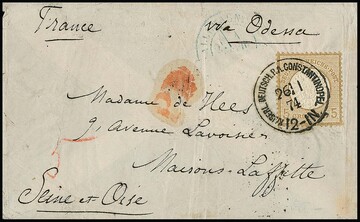 France
via Odessa
Madame de Hees
9, Avenue Lavoisier
Maisons-Laffitte
Seine et Oise
KAISERL. DEUTSCH. P.A. CONSTANTINOPEL
26/1
74
12-1N.
5